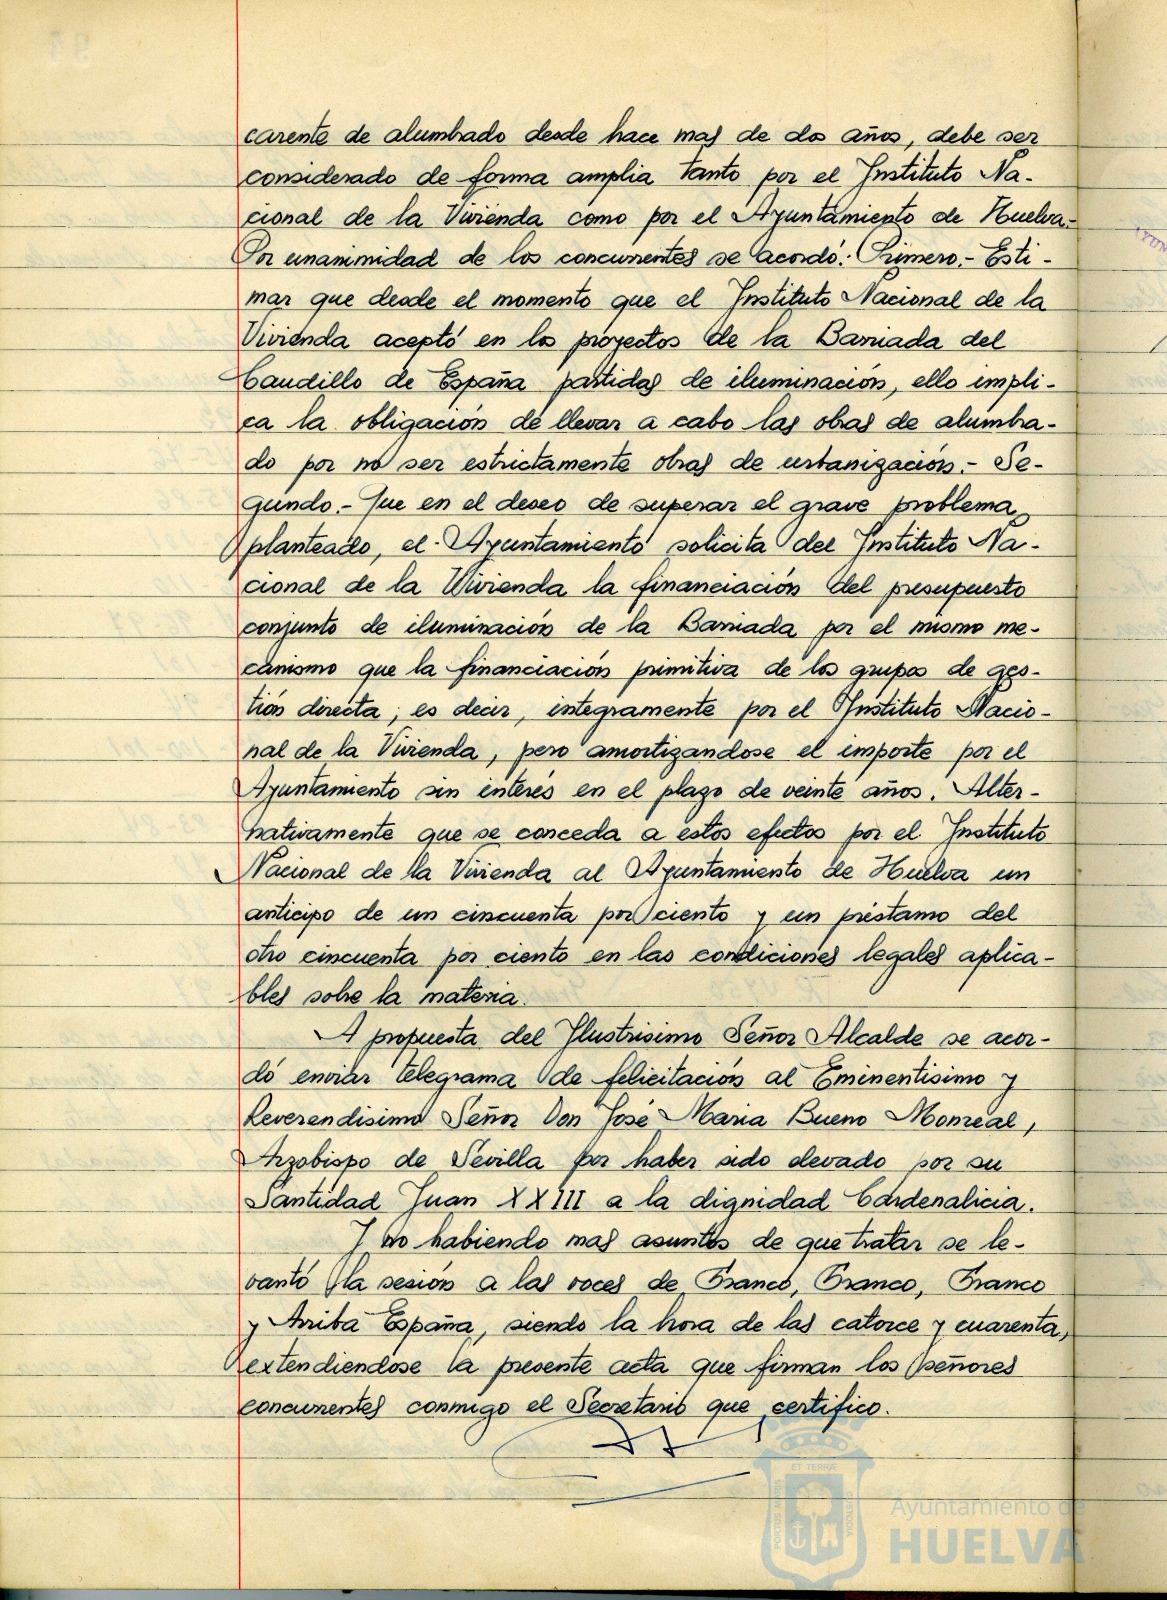 carente de alumbrado desde hace mas de dos años, debe ser
considerado de forma amplia tanto por el Instituto Na-
cional de la Vivienda como por el Ayuntamiento de Huelva.-
Por unanimidad de los concurrentes se acordó: Primero.- Esti-
mar que desde el momento que el Instituto Nacional de la
Vivienda aceptó en los proyectos de la Barriada del
Caudillo de España partidas de iluminación, ello impli-
ca la obligación de llevar a cabo las obras de alumbra-
do por no ser estrictamente obras de urbanización.- Se-
gundo.- Que en el deseo de superar el grave problema
planteado, el Ayuntamiento solicita del Instituto Na-
cional de la Vivienda la financiación del presupuesto
conjunto de iluminación de la Barriada por el mismo me-
canismo que la financiación primitiva de los grupos de ges-
tión directa, es decir, integramente por el Instituto Nacio-
nal de la Vivienda, pero amortizandose el importe por el
Ayuntamiento sin interés en el plazo de veinte años. Alter-
nativamente que se conceda a estos efectos por el Instituto
Nacional de la Vivienda al Ayuntamiento de Huelva un
anticipo de un cincuenta por ciento y un préstamo del
otro cincuenta por ciento en las condiciones legales aplica-
bles sobre la materia.
A propuesta del Ilustrisimo Señor Alcalde se acor-
dó enviar telegrama de felicitación al Eminentisimo y
Reverendisimo Señor Don José Maria Bueno Monreal,
Arzobispo de Sevilla por haber sido elevado por su
Santidad Juan XXIII a la dignidad Cardenalicia.
Y no habiendo mas asuntos de que tratar se le-
vantó la sesión a las voces de Franco, Franco, Franco
y Arriba España, siendo la hora de las catorce y cuarenta,
extendiendose la presente acta que firman los señores
concurrentes conmigo el Secretario que certifico.
ET TERRA
PORTUS MARIS
CUSTODIA
Ayuntamiento de
HUELVA